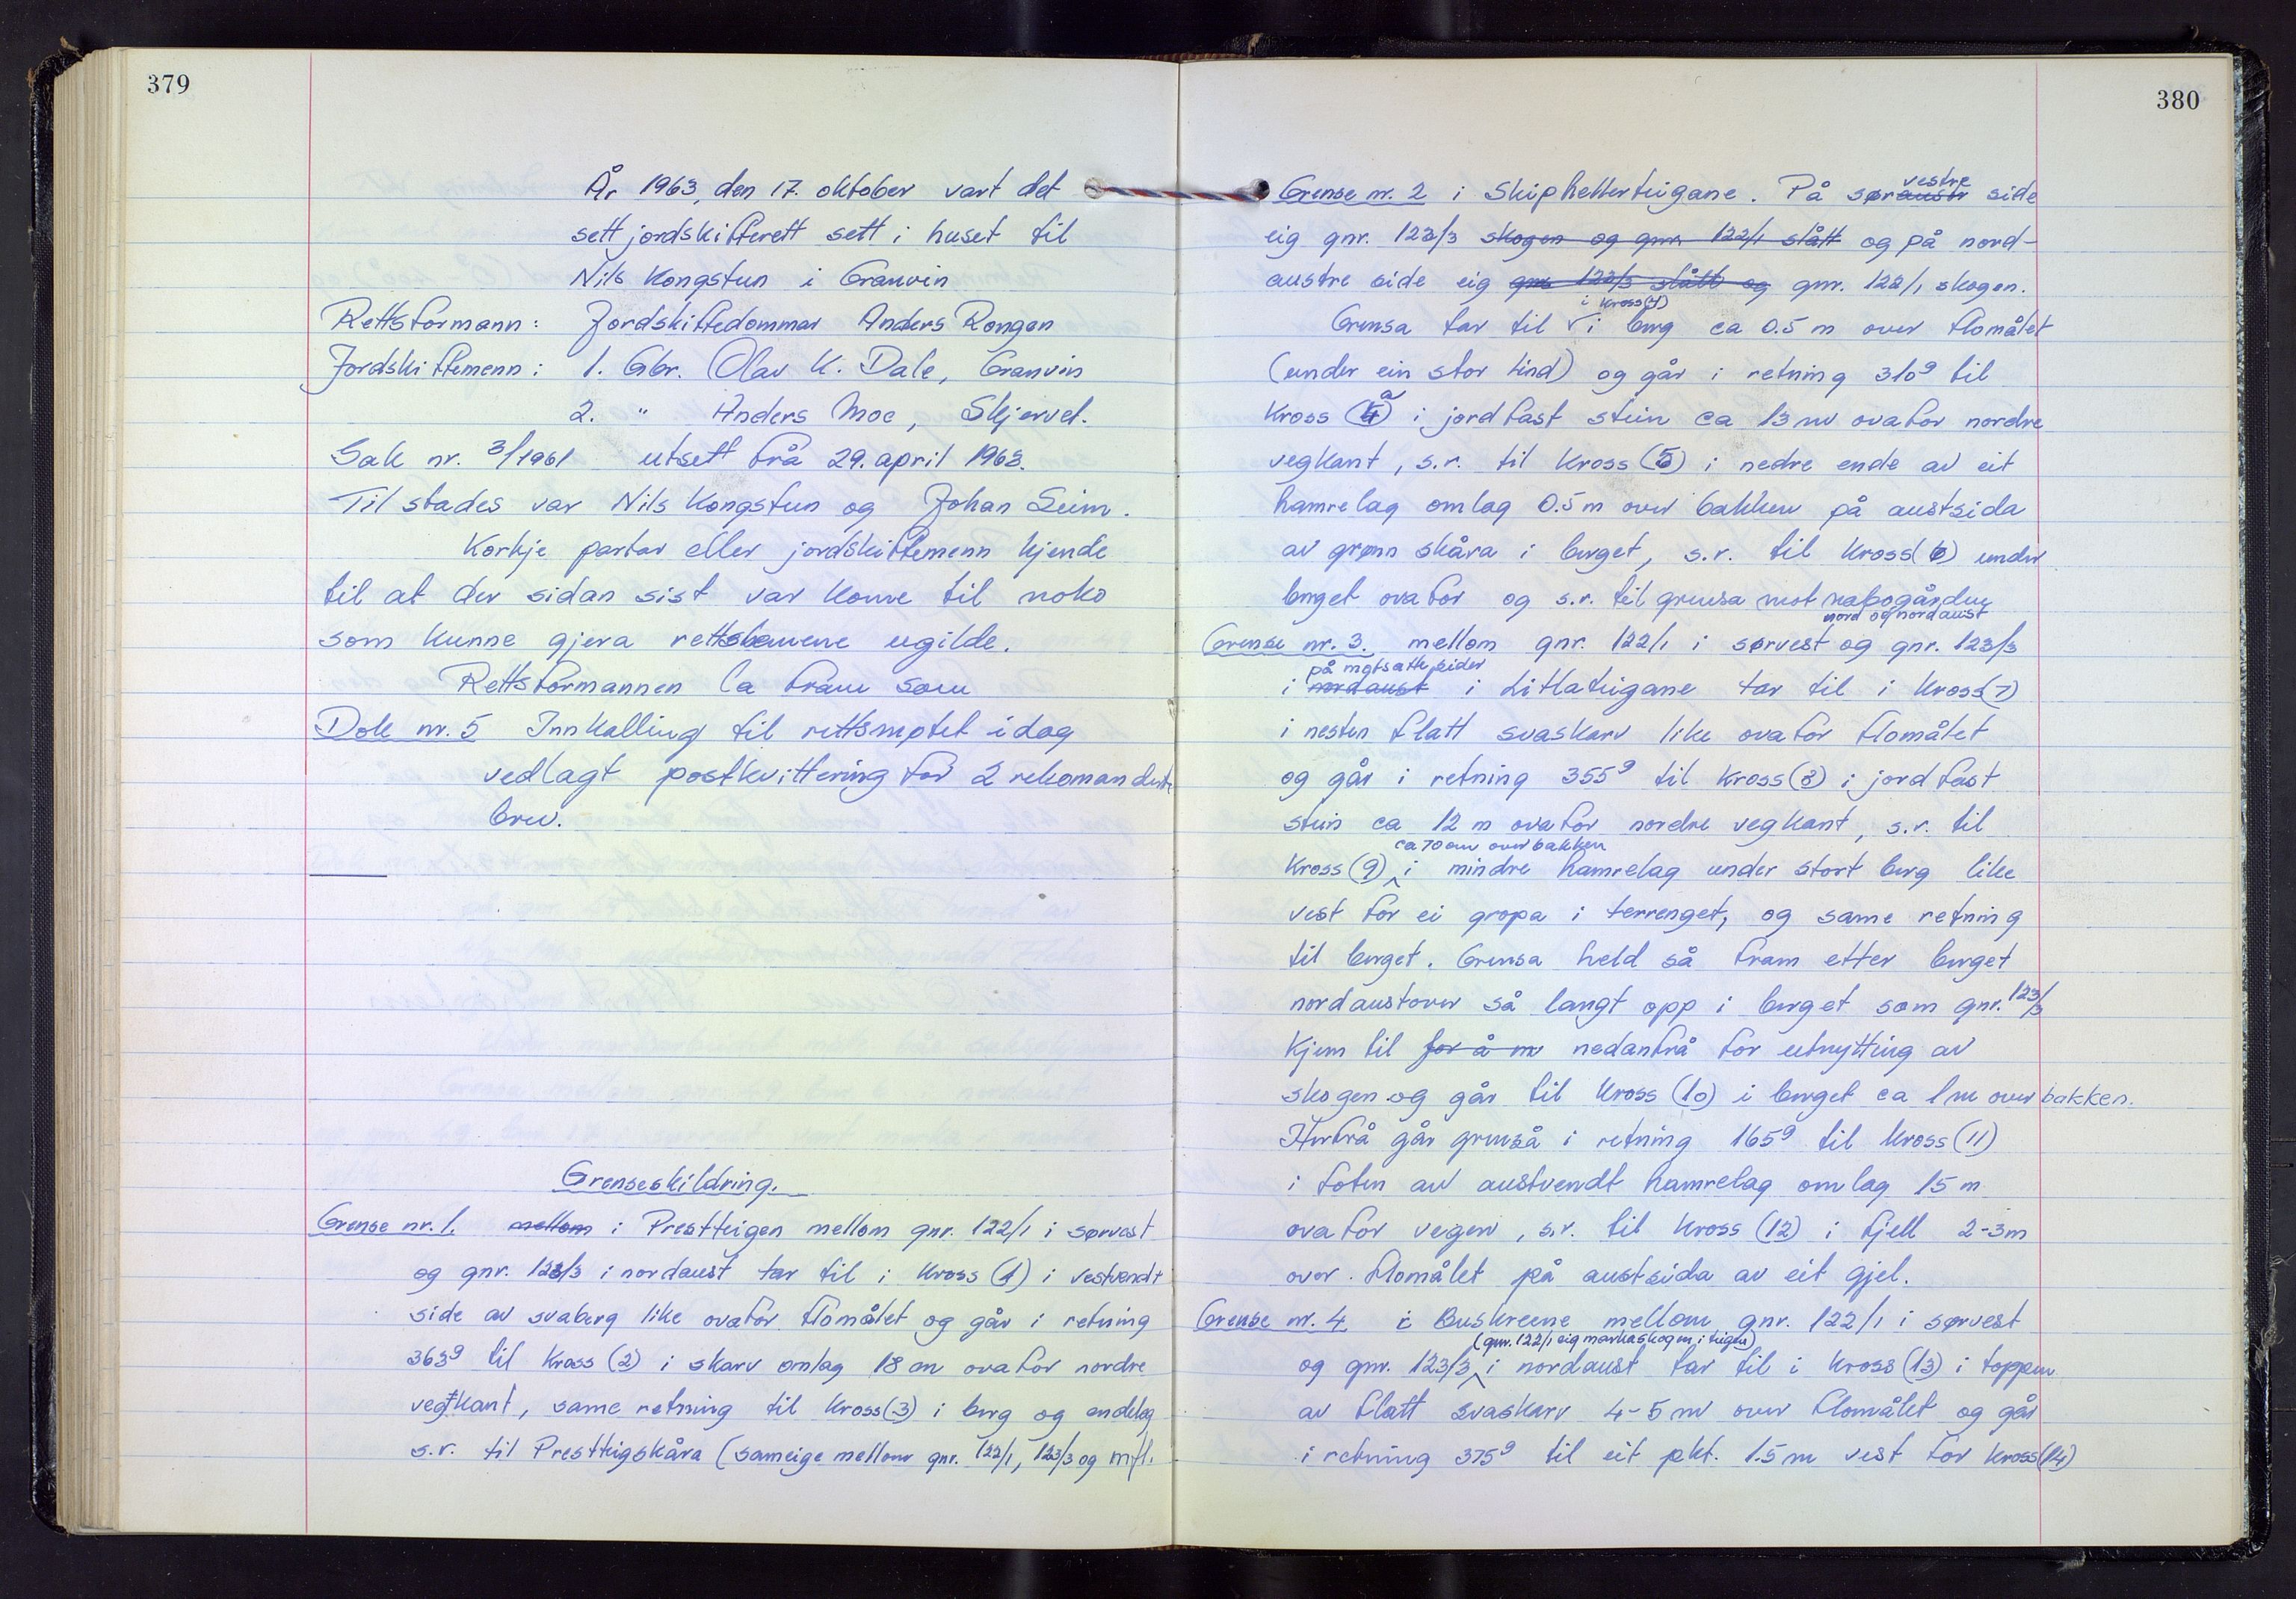 379
År 1963, den 17. oktober vart det
sett jordskifterett sett i huset til
Nils Kongstun i Granvin
Rettsformann: Jordskiftedommar Anders Rongen
Jordskiftemenn: 1. Gbr. Olav K. Dale, Granvin
2. " Anders Moe, Skjervet.
Sak nr. 3/1961 utsett frå 29. april 1963.
Til stades var Nils Kongstun og Johan Seim.
Korkje partar eller jordskiftemenn kjende
til at der sidan sist var kome til noko
som kunne gjera rettsbruene ugilde.
Rettsformannen la fram som
Dok nr. 5 Innkalling til rettsmøtet idag
vedlagt postkvittering for 2 rekomanderte
brev.
Grenseskildring.
Grense nr. 1. mellom i Prestteigen mellom gnr. 122/1 i sørvest
og gnr. 123/3 i nordaust tar til i kross (1) i vestvendt
side av svaberg like ovafor flomålet og går i retning
363g til kross (2) i skarv omlag 18 m ovafor nordre
vegkant, same retning til kross (3) i berg og endeleg
s.r. til Presttigskåra (sameige mellom gnr. 122/1, 123/3 og m/fl.
380
Grense nr. 2 i Skiphellerteigane. På søraustr vestre side
eig gnr. 123/3 skogen og gnr. 122/1 slått og på nord-
austre side eig gnr 123/3 slått og gnr. 122/1 skogen.
i kross (4)
Grensa tar til i berg ca 0.5 m over flomålet
(under ein stor tind) og går i retning 310g til
kross (4a) i jordfast stein ca 13 m ovafor nordre
vegkant, s.r. til kross (5) i nedre ende av eit
hamrelag omlag 0.5 m over bakken på austsida
av grønn skåra i berget, s.r. til kross (6) under
berget ovafor og s.r. til grensa mot nabogården
nord og nordaust
Grense nr. 3. mellom gnr. 122/1 i sørvest og gnr. 123/3
på motsatte sider
i nordaust i Litlateigane tar til i kross (7)
i nesten flatt svaskarv like ovafor flomålet
og går i retning 355g til kross (8) i jordfast
stein ca 12 m ovafor nordre vegkant, s.r. til
ca 70 cm over bakken
kross (9) i mindre hamrelag under stort berg like
vest for ei gropa i terrenget, og same retning
til berget. Grensa held så fram etter berget
nordaustover så langt opp i berget som gnr. 123/3
kjem til for å m nedanfrå for utnytting av
skogen og går til kross (10) i berget ca 1 m over bakken.
Herfrå går grensa i retning 165g til kross (11)
i foten av austvendt hamrelag omlag 15 m
ovafor vegen, s.r. til kross (12) i fjell 2-3 m
over flomålet på austsida av eit gjel.
Grense nr. 4 i Buskreene mellom gnr. 122/1 i sørvest
(gnr. 122/1 eig markaskogen i teigen)
og gnr. 123/3 i nordaust tar til i kross (13) i toppen
av flatt svaskarv 4-5 m over flomålet og går
i retning 375g til eit pkt. 1.5 m vest for kross (14)